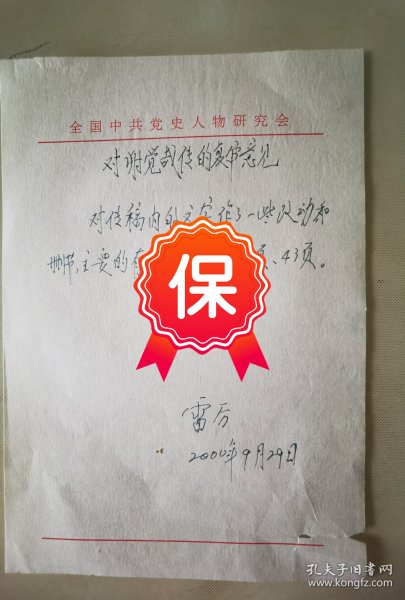 全国中共党史人物研究会
对谢觉哉传的复审意见
对传稿内的文字作了一些改动和
删节,主要的有 页、43页。
保
雷厉
2000年9月29日
孔夫子旧书网
www.kongfz.com